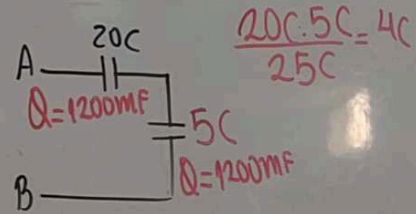 20C
20C.5C = 4C
25C
A
Q=1200mF
5C
Q=1200mF
B